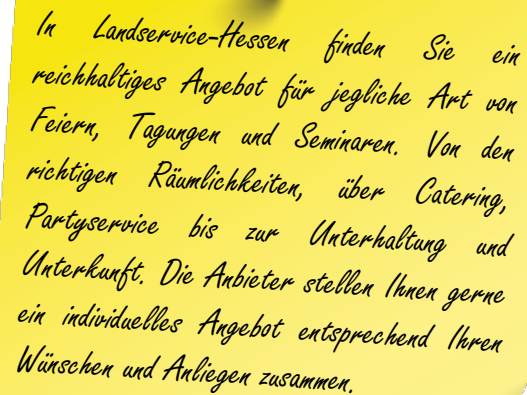 In Landservice-Hessen finden Sie ein
reichhaltiges Angebot für jegliche Art von
Feiern, Tagungen und Seminaren. Von den
richtigen Räumlichkeiten, über Catering,
Partyservice bis zur Unterhaltung und
Unterkunft. Die Anbieter stellen Ihnen gerne
ein individuelles Angebot entsprechend Ihren
Wünschen und Anliegen zusammen.